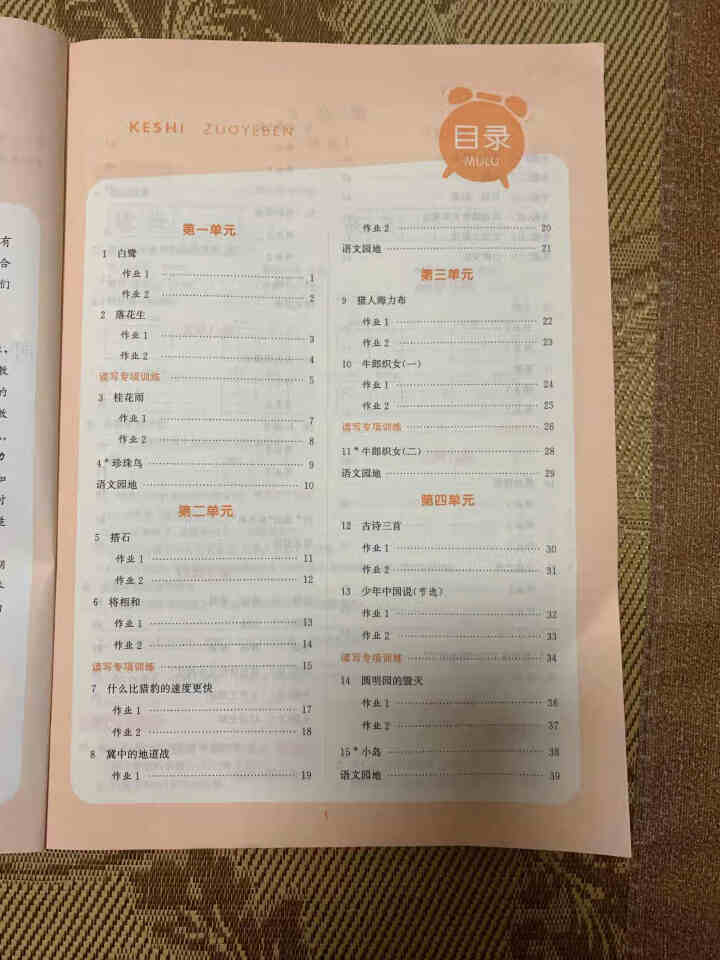 KESHI ZUOYEBEN
目录
MULU
第一单元
1 白鹭
作业1 …… 1
作业2 …… 2
2 落花生
作业1 …… 3
作业2 …… 4
读写专项训练 …… 5
3 桂花雨
作业1 …… 7
作业2 …… 8
4*珍珠鸟 …… 9
语文园地 …… 10
第二单元
5 搭石
作业1 …… 11
作业2 …… 12
6 将相和
作业1 …… 13
作业2 …… 14
读写专项训练 …… 15
7 什么比猎豹的速度更快
作业1 …… 17
作业2 …… 18
8 冀中的地道战
作业1 …… 19
作业2 …… 20
语文园地 …… 21
第三单元
9 猎人海力布
作业1 …… 22
作业2 …… 23
10 牛郎织女(一)
作业1 …… 24
作业2 …… 25
读写专项训练 …… 26
11*牛郎织女(二) …… 28
语文园地 …… 29
第四单元
12 古诗三首
作业1 …… 30
作业2 …… 31
13 少年中国说(节选)
作业1 …… 32
作业2 …… 33
读写专项训练 …… 34
14 圆明园的毁灭
作业1 …… 36
作业2 …… 37
15*小岛 …… 38
语文园地 …… 39
1